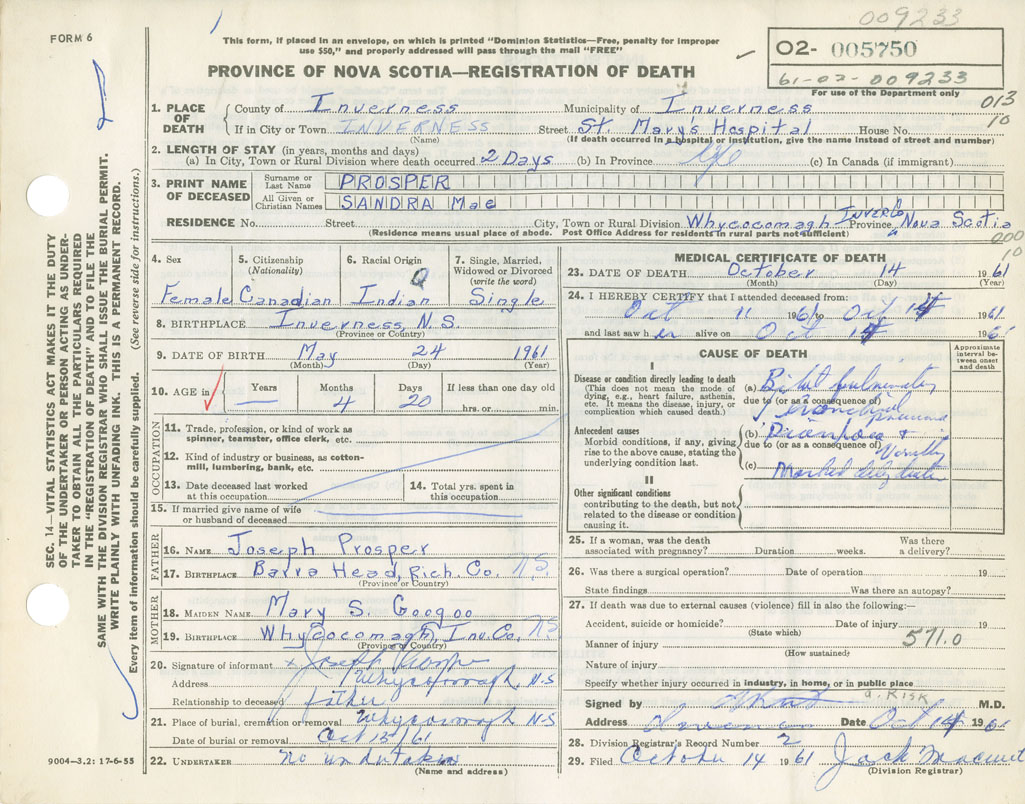 009233
FORM 6
This form, if placed in an envelope, on which is printed "Dominion Statistics—Free, penalty for improper
use $50," and properly addressed will pass through the mail "FREE"
02- 005750
61-02-009233
For use of the Department only
PROVINCE OF NOVA SCOTIA—REGISTRATION OF DEATH
013
10
1. PLACE OF DEATH
County of Inverness Municipality of Inverness
If in City or Town INVERNESS Street St. Mary's Hospital House No.
(Name) (If death occurred in a hospital or institution, give the name instead of street and number)
2. LENGTH OF STAY (in years, months and days)
(a) In City, Town or Rural Division where death occurred 2 Days (b) In Province Life (c) In Canada (if immigrant)
3. PRINT NAME OF DECEASED
Surname or Last Name PROSPER
All Given or Christian Names SANDRA Mae
RESIDENCE No. Street City, Town or Rural Division Whycocomagh INVER Co Province Nova Scotia
(Residence means usual place of abode. Post Office Address for residents in rural parts not sufficient)
200
10
4. Sex
Female
5. Citizenship
(Nationality)
Canadian
6. Racial Origin
Indian
7. Single, Married, Widowed or Divorced
(write the word)
Single
8. BIRTHPLACE Inverness, N.S.
(Province or Country)
9. DATE OF BIRTH May 24 1961
(Month) (Day) (Year)
10. AGE in
Years Months Days If less than one day old
— 4 20 hrs. or min.
OCCUPATION
11. Trade, profession, or kind of work as
spinner, teamster, office clerk, etc.
12. Kind of industry or business, as cotton-
mill, lumbering, bank, etc.
13. Date deceased last worked
at this occupation
14. Total yrs. spent in
this occupation
15. If married give name of wife
or husband of deceased
FATHER
16. NAME Joseph Prosper
17. BIRTHPLACE Barra Head, Rich. Co. N.S.
(Province or Country)
MOTHER
18. MAIDEN NAME Mary S. Googoo
19. BIRTHPLACE Whycocomagh, Inv. Co. N.S.
(Province or Country)
20. Signature of informant x Joseph Prosper
Address Whycocomagh, N.S
Relationship to deceased father
21. Place of burial, cremation or removal Whycocomagh N.S
Date of burial or removal Oct 15/61
22. UNDERTAKER no undertaker
(Name and address)
MEDICAL CERTIFICATE OF DEATH
23. DATE OF DEATH October 14 1961
(Month) (Day) (Year)
24. I HEREBY CERTIFY that I attended deceased from:
Oct 11 1961 to Oct 14 1961
and last saw her alive on Oct 14 196
CAUSE OF DEATH
Approximate interval between onset and death
I
Disease or condition directly leading to death
(This does not mean the mode of
dying, e.g., heart failure, asthenia,
etc. It means the disease, injury, or
complication which caused death.)
(a)
due to (or as a consequence of)
Antecedent causes
Morbid conditions, if any, giving
rise to the above cause, stating the
underlying condition last.
(b) Diarrhoea +
due to (or as a consequence of)
Vomiting
(c) Marked dehydration
II
Other significant conditions
contributing to the death, but not
related to the disease or condition
causing it.
25. If a woman, was the death
associated with pregnancy? Duration weeks. Was there
a delivery?
26. Was there a surgical operation? Date of operation 19
State findings Was there an autopsy?
27. If death was due to external causes (violence) fill in also the following:—
Accident, suicide or homicide? Date of injury 19
(State which)
571.0
Manner of injury
(How sustained)
Nature of injury
Specify whether injury occurred in industry, in home, or in public place
Signed by M.D.
RISK
Address Date Oct 14 1961
28. Division Registrar's Record Number 2
29. Filed October 14 1961 Jack
(Division Registrar)
SEC. 14—VITAL STATISTICS ACT MAKES IT THE DUTY
OF THE UNDERTAKER OR PERSON ACTING AS UNDER-
TAKER TO OBTAIN ALL THE PARTICULARS REQUIRED
IN THE "REGISTRATION OF DEATH" AND TO FILE THE
SAME WITH THE DIVISION REGISTRAR WHO SHALL ISSUE THE BURIAL PERMIT.
WRITE PLAINLY WITH UNFADING INK. THIS IS A PERMANENT RECORD.
Every item of information should be carefully supplied. (See reverse side for instructions.)
9004—3.2: 17-6-55